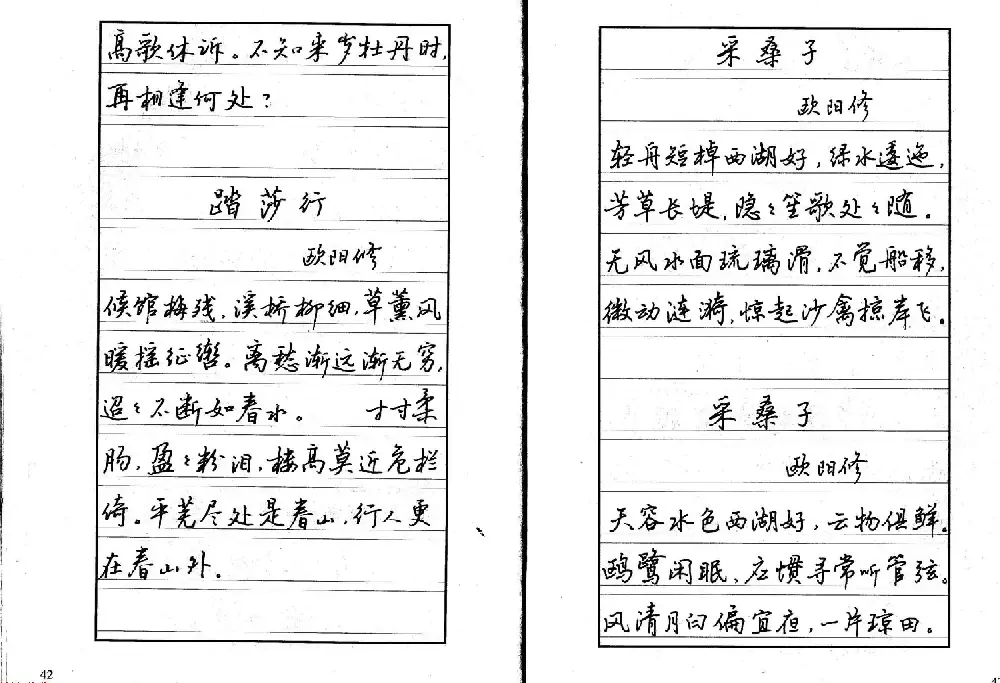 高歌休诉。不知来岁牡丹时，
再相逢何处？
踏莎行
欧阳修
候馆梅残，溪桥柳细，草薰风
暖摇征辔。离愁渐远渐无穷，
迢〻不断如春水。 寸寸柔
肠，盈〻粉泪，楼高莫近危栏
倚。平芜尽处是春山，行人更
在春山外。
42
采桑子
欧阳修
轻舟短棹西湖好，绿水逶迤，
芳草长堤，隐〻笙歌处〻随。
无风水面琉璃滑，不觉船移，
微动涟漪，惊起沙禽掠岸飞。
采桑子
欧阳修
天容水色西湖好，云物俱鲜。
鸥鹭闲眠，应惯寻常听管弦。
风清月白偏宜夜，一片琼田。